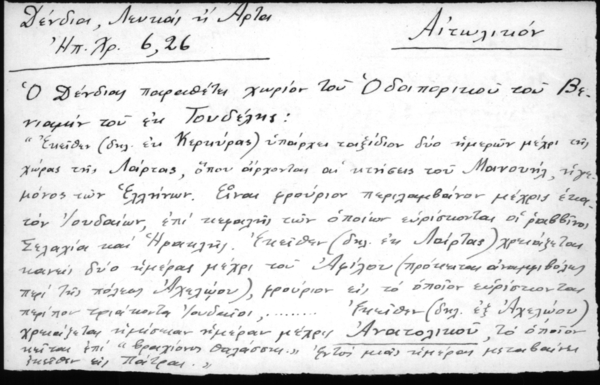 Δένδιας, Λευκάς ἢ Ἄρτα
Ἠπ. Χρ. 6, 26
Αἰτωλικόν
Ὁ Δένδιας παραθέτει χωρίον τοῦ Ὁδοιπορικοῦ τοῦ Βε-
νιαμὴν τοῦ ἐκ Τουδέλης:
"Ἐκεῖθεν (δηλ. ἐκ Κερκύρας) ὑπάρχει ταξίδιον δύο ἡμερῶν μέχρι τῆς
χώρας τῆς Λάρτας, ὅπου ἄρχονται αἱ κτήσεις τοῦ Μανουήλ, ἡγε-
μόνος τῶν Ἑλλήνων. Εἶναι φρούριον περιλαμβάνον μέχρις ἑκα-
τὸν Ἰουδαίων, ἐπὶ κεφαλῆς τῶν ὁποίων εὑρίσκονται οἱ ῥαββῖνοι
Σελαχία καὶ Ἡρακλῆς. Ἐκεῖθεν (δηλ. ἐκ Λάρτας) χρειάζεται
κανεὶς δύο ἡμέρας μέχρι τοῦ Ἀφίλου (πρόκειται ἀναμφιβόλως
περὶ τῆς πόλεως Ἀχελῴου), φρούριον εἰς τὸ ὁποῖον εὑρίσκονται
περίπου τριάκοντα Ἰουδαῖοι, ........ Ἐκεῖθεν (δηλ. ἐξ Ἀχελῴου)
χρειάζεται ἡμίσειαν ἡμέραν μέχρις Ἀνατολικοῦ, τὸ ὁποῖον
κεῖται ἐπὶ "βραχίονος θαλάσσης." Ἐντὸς μιᾶς ἡμέρας μεταβαίνει
ἐκεῖθεν εἰς Πάτρας."